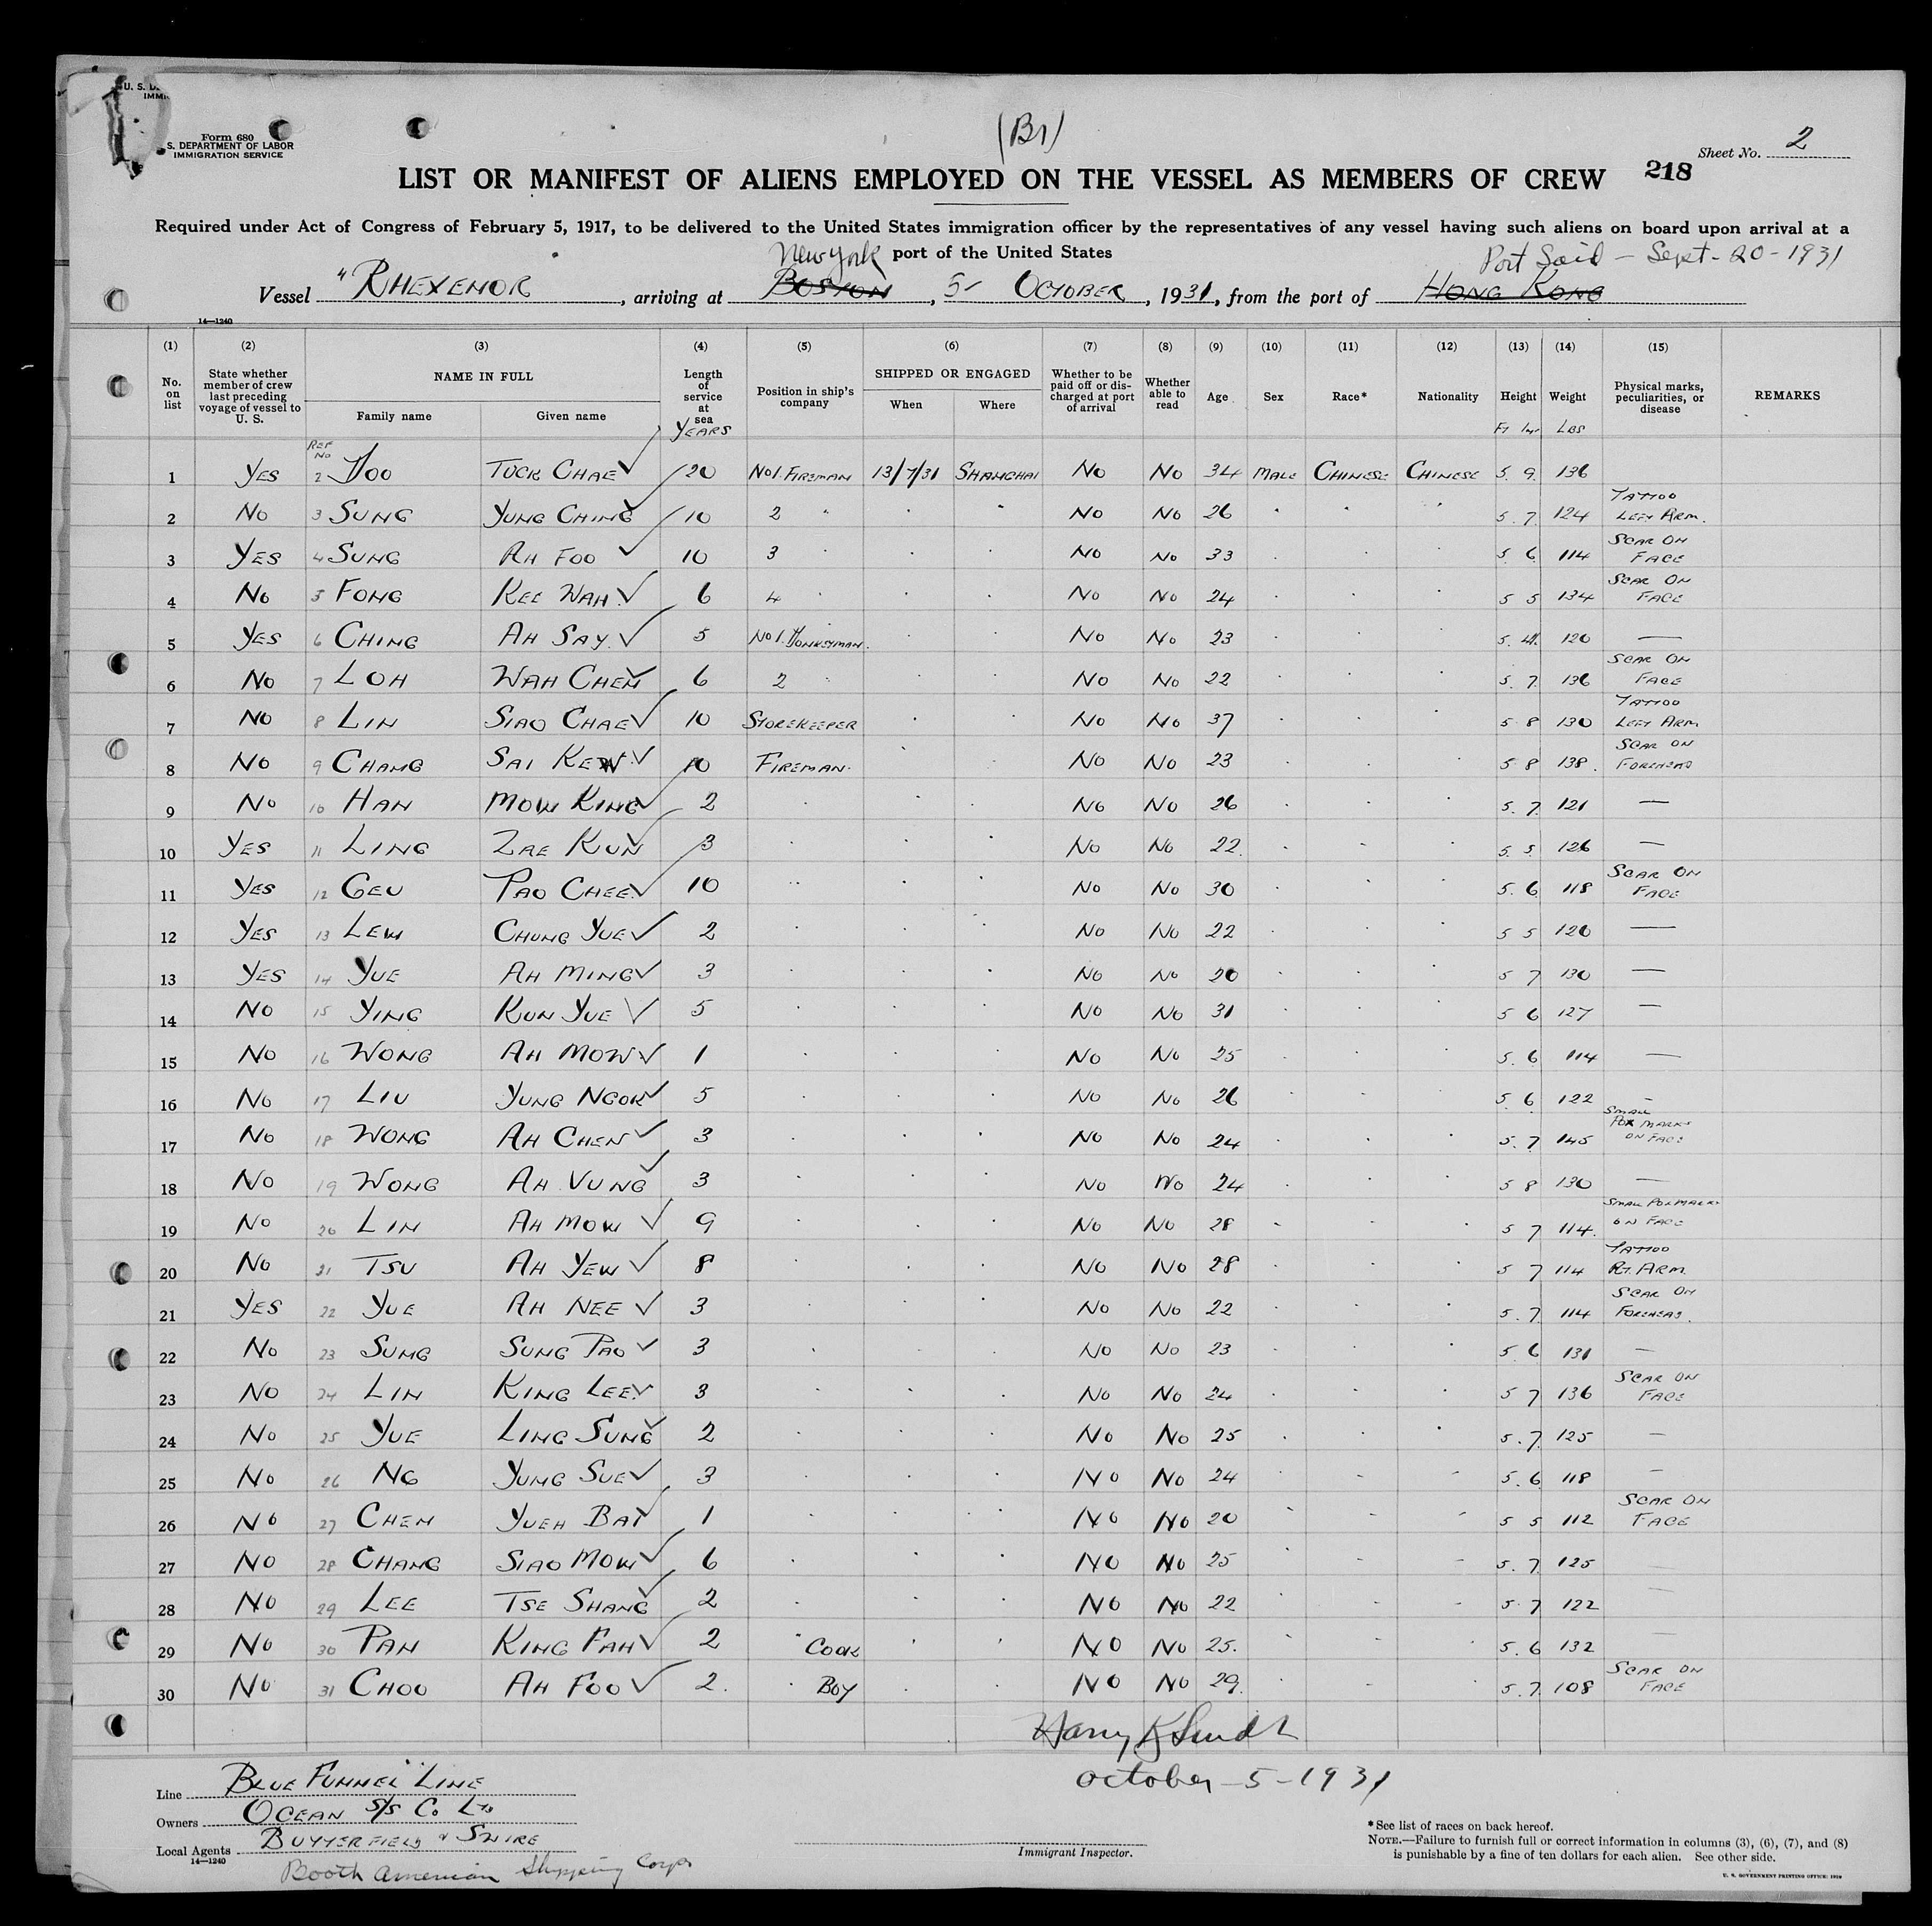 U. S. D
IMMI
Form 680
S. DEPARTMENT OF LABOR
IMMIGRATION SERVICE
(Br)
Sheet No. 2
LIST OR MANIFEST OF ALIENS EMPLOYED ON THE VESSEL AS MEMBERS OF CREW 218
Required under Act of Congress of February 5, 1917, to be delivered to the United States immigration officer by the representatives of any vessel having such aliens on board upon arrival at a
port of the United States
New York Port Said - Sept - 20 - 1931
Vessel "RHEXENOR, arriving at BOSTON, 5- OCTOBER, 1931, from the port of HONG KONG
14—1240
(1) (2) (3) (4) (5) (6) (7) (8) (9) (10) (11) (12) (13) (14) (15)
No. on list State whether member of crew last preceding voyage of vessel to U. S. NAME IN FULL Family name Given name Length of service at sea YEARS Position in ship's company SHIPPED OR ENGAGED When Where Whether to be paid off or discharged at port of arrival Whether able to read Age Sex Race* Nationality Height Ft In Weight LBS Physical marks, peculiarities, or disease REMARKS
REF NO
1 YES 2 TUCK CHAE 20 NO1. FIREMAN 13/7/31 SHANGHAI NO NO 34 MALE CHINESE CHINESE 5. 9. 136
2 NO 3 SUNG YUNG CHING 10 2 " NO NO 26 5. 7. 124 TATTOO LEFT ARM.
3 YES 4 SUNG AH FOO 10 3 NO NO 33 5 6 114 SCAR ON FACE
4 NO 5 FONG KEE WAH 6 4 NO NO 24 5 5 134 SCAR ON FACE
5 YES 6 CHING AH SAY. 5 NO1. DONKEYMAN. NO NO 23 5. 4. 120 —
6 NO 7 LOH WAH CHEN 6 2 NO NO 22 5. 7. 136 SCAR ON FACE
7 NO 8 LIN SIAO CHAE 10 STOREKEEPER NO NO 37 5 8 130 TATTOO LEFT ARM
8 NO 9 CHANG SAI KEW 10 FIREMAN. NO NO 23 5 8 138. SCAR ON FOREHEAD
9 NO 10 HAN MOW KING 2 NO NO 26 5. 7. 121 —
10 YES 11 LING ZAE KUN 3 NO NO 22. 5. 5. 126 —
11 YES 12 GEU PAO CHEE 10 NO NO 30 5. 6 118 SCAR ON FACE
12 YES 13 LEW CHUNG YUE 2 NO NO 22 5 5 120 —
13 YES 14 YUE AH MING 3 NO NO 20 5 7 130 —
14 NO 15 YING KUN YUE 5 NO NO 31 5 6 127 —
15 NO 16 WONG AH MOW 1 NO NO 25 5. 6 114 —
16 NO 17 LIU YUNG NGOK 5 NO NO 26 5 6 122 —
17 NO 18 WONG AH CHEN 3 NO NO 24 5. 7 145 SMALL POX MARKS ON FACE
18 NO 19 WONG AH VUNG 3 NO NO 24 5 8 130 —
19 NO 20 LIN AH MOW 9 NO NO 28 5 7 114. SMALL POX MARKS ON FACE
20 NO 21 TSU AH YEW 8 NO NO 28 5 7 114 TATTOO RT. ARM
21 YES 22 YUE AH NEE 3 NO NO 22 5. 7 114 SCAR ON FOREHEAD.
22 NO 23 SUNG SUNG PAO 3 NO NO 23 5 6 131 —
23 NO 24 LIN KING LEE 3 NO NO 24 5 7 136 SCAR ON FACE
24 NO 25 YUE LING SUNG 2 NO NO 25 5. 7. 125 —
25 NO 26 NG YUNG SUE 3 NO NO 24 5. 6 118 —
26 NO 27 CHEN YUEH BAY 1 NO NO 20 5 5 112 SCAR ON FACE
27 NO 28 CHANG SIAO MOW 6 NO NO 25 5. 7. 125 —
28 NO 29 LEE TSE SHANG 2 NO NO 22 5 7 122 —
29 NO 30 PAN KING FAH 2 " COOK NO NO 25. 5. 6 132 —
30 NO 31 CHOO AH FOO 2. " BOY NO NO 29. 5. 7. 108 SCAR ON FACE
Harry
October - 5 - 1931
Line BLUE FUNNEL LINE
Owners OCEAN S/S Co. LTD
Local Agents BUTTERFIELD & SWIRE
14—1240
Booth American Shipping Corp.
Immigrant Inspector.
*See list of races on back hereof.
NOTE.—Failure to furnish full or correct information in columns (3), (6), (7), and (8)
is punishable by a fine of ten dollars for each alien. See other side.
U. S. GOVERNMENT PRINTING OFFICE: 1929